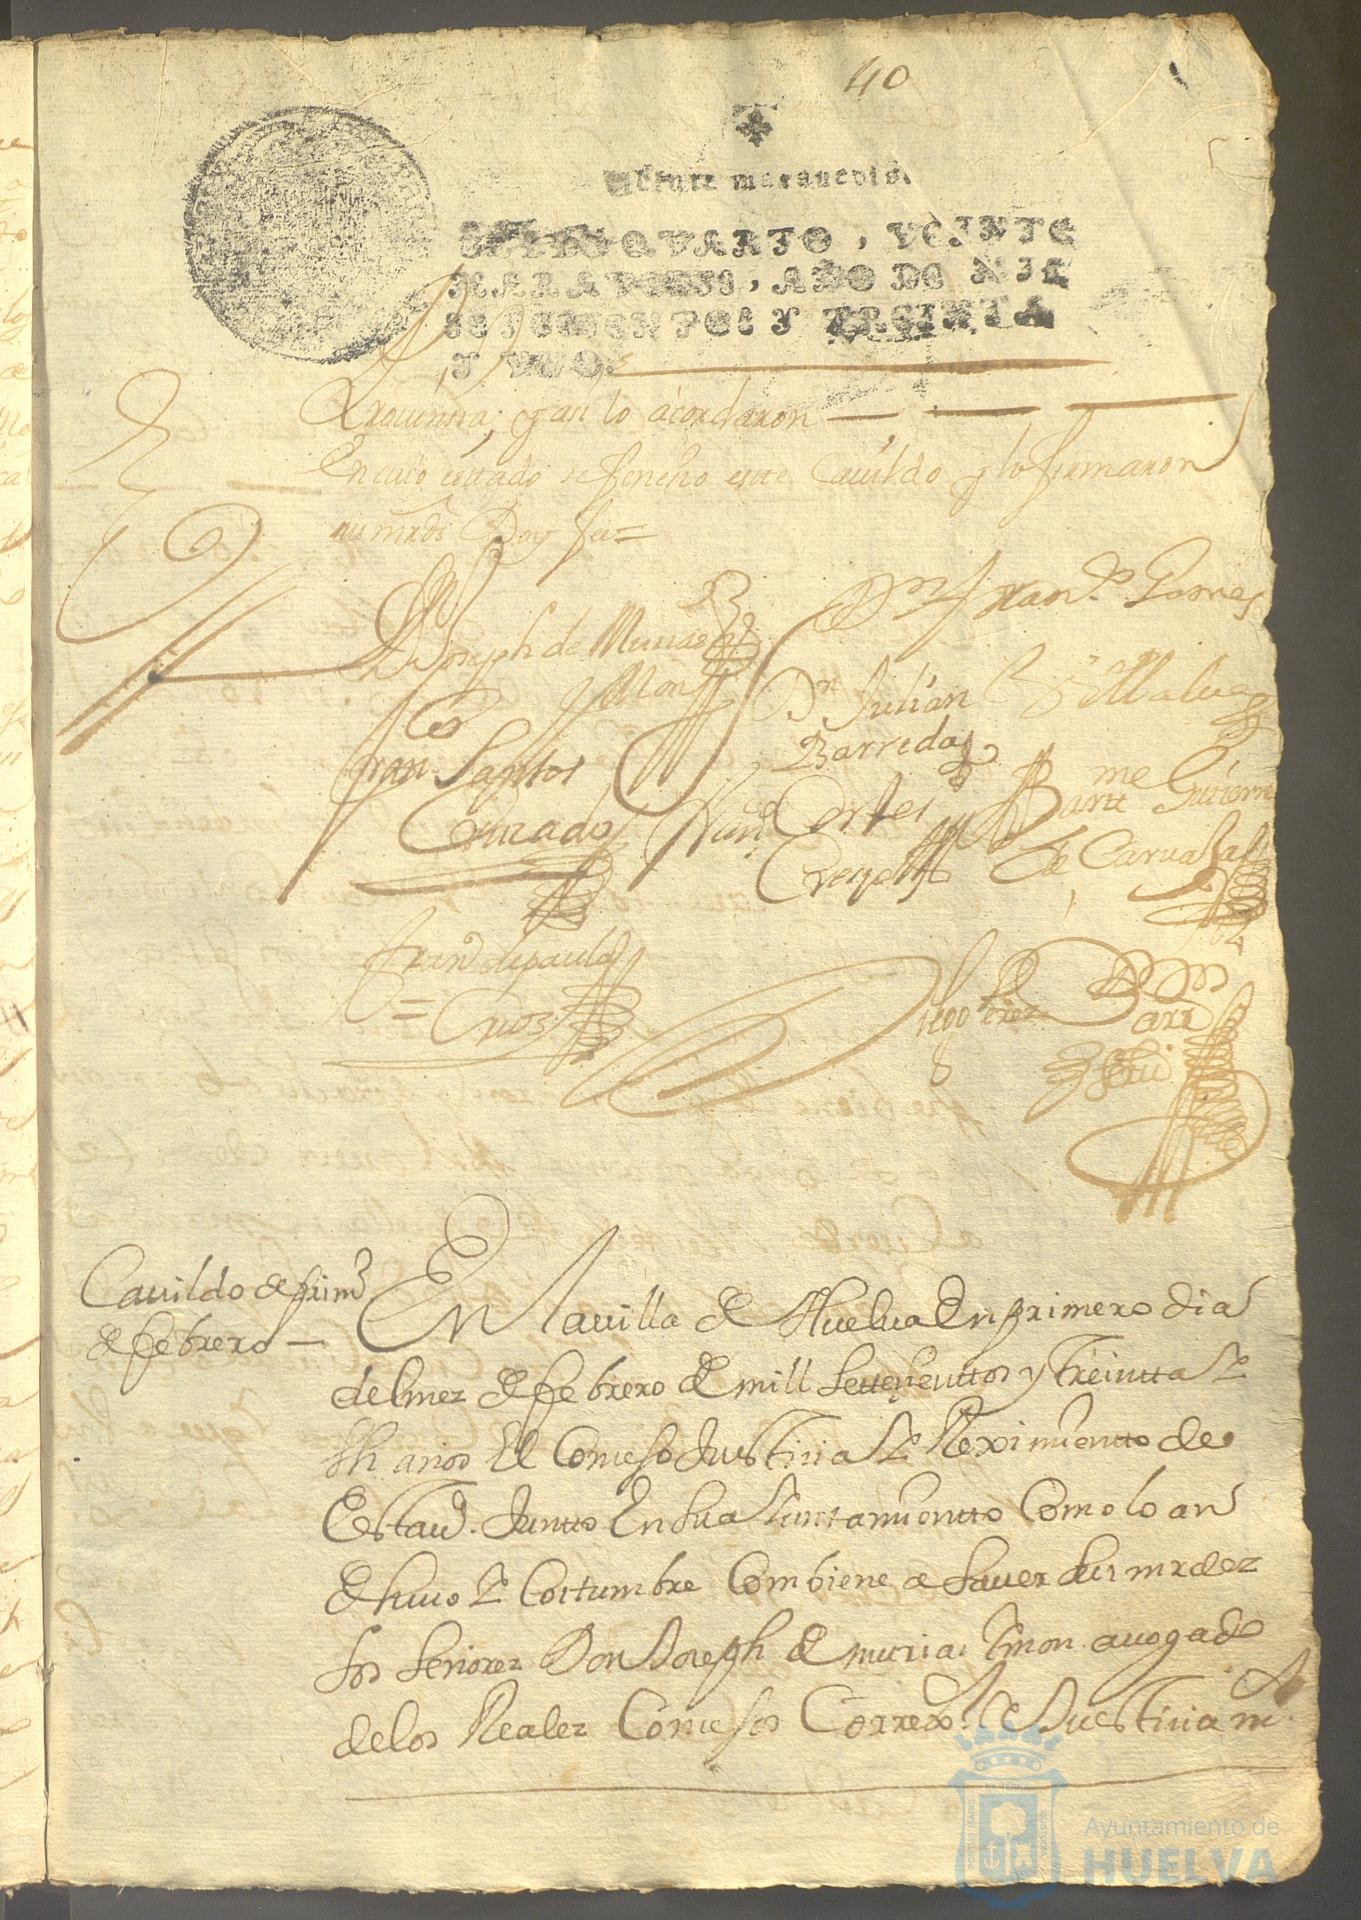 40
Veinte maravedis.
SELLO QVARTO, VEINTE
MARAVEDIS, AÑO DE MIL
SETECIENTOS Y TREINTA
Y VNO.
y asi lo acordaron
En cuio esttado se fenecio este Cavildo y lo firmaron
sus mrds Doy fee =
Dn Joseph de Murias
Dn Fran.co Gomes
Monrr
Dn Julian
Barreda
Villalva
Fran.co Santos
Cruzado
Cortes
Crespo
Bartt me Gutierr
de Carvajal
Fran.co de paula
= Quos
Diego Perez
Cavildo de prim.o
de febrero —
En la villa de Huelva en primero dia
del mez de febrero de mill settesenttos y treintta y
un anos El Consejo Justicia y Reximientto de
Esta v.a Juntto En su aiuntamientto Como lo an
de huso y Costumbre Combiene a saver sus mrdez
los senorez Don Joseph de murias avogado
de los Realez Consejos Correx.or y Justicia m.r
Ayuntamiento de
HUELVA